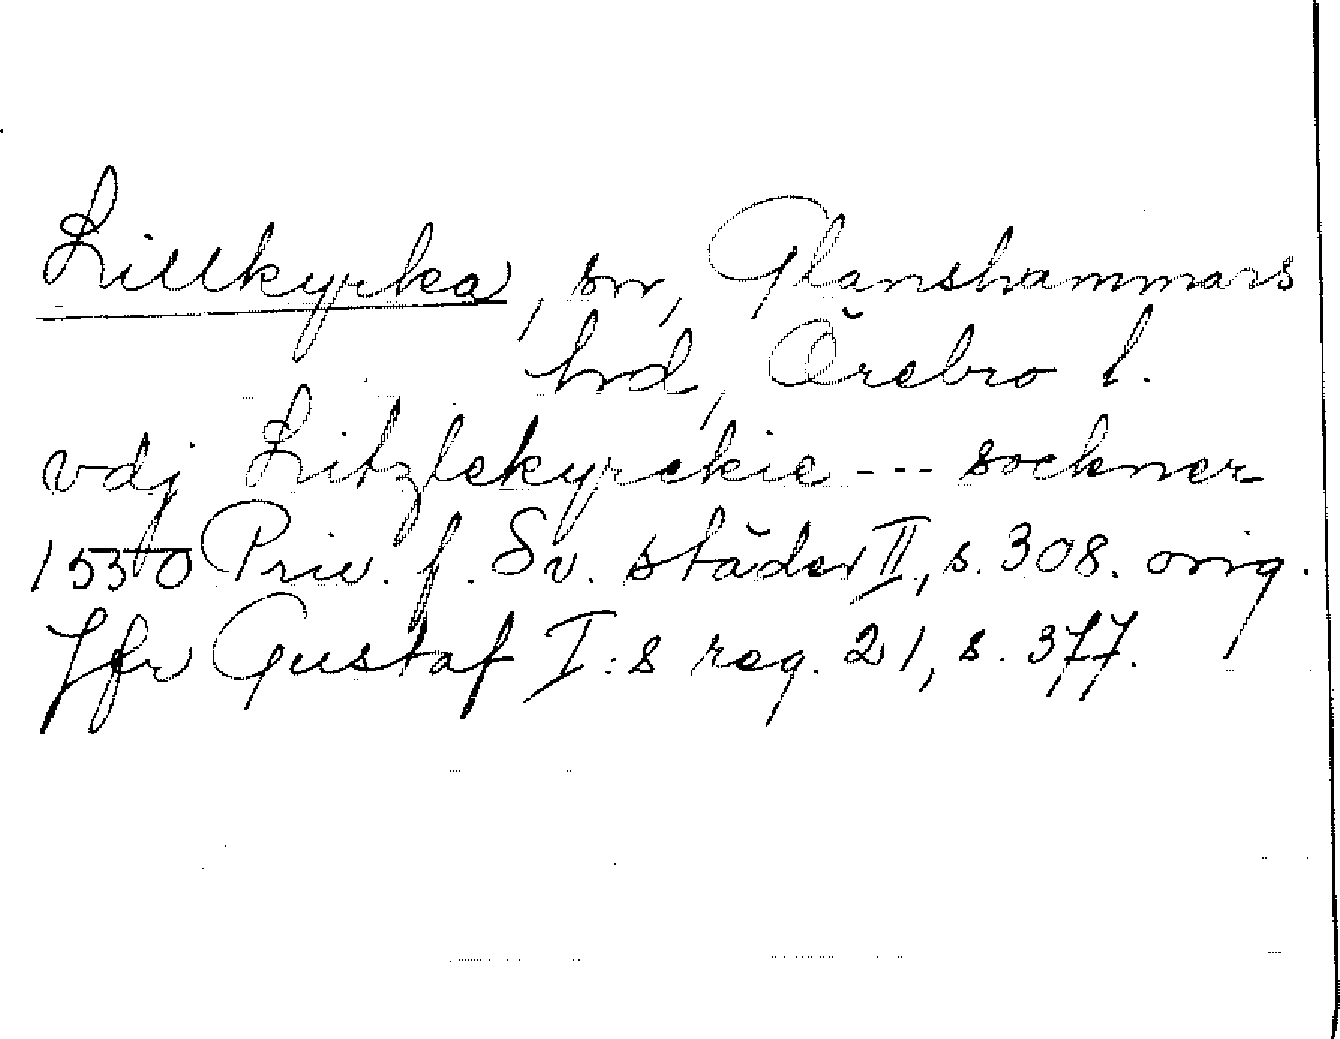 Lillkyrka, sn, Glanshammars
hrd, Örebro l.
vdj Litzlekyrckie --- sockner
1550 Priv. f. Sv. städer II, s. 308. orig.
Jfr Gustaf I:s reg. 21, s. 377.